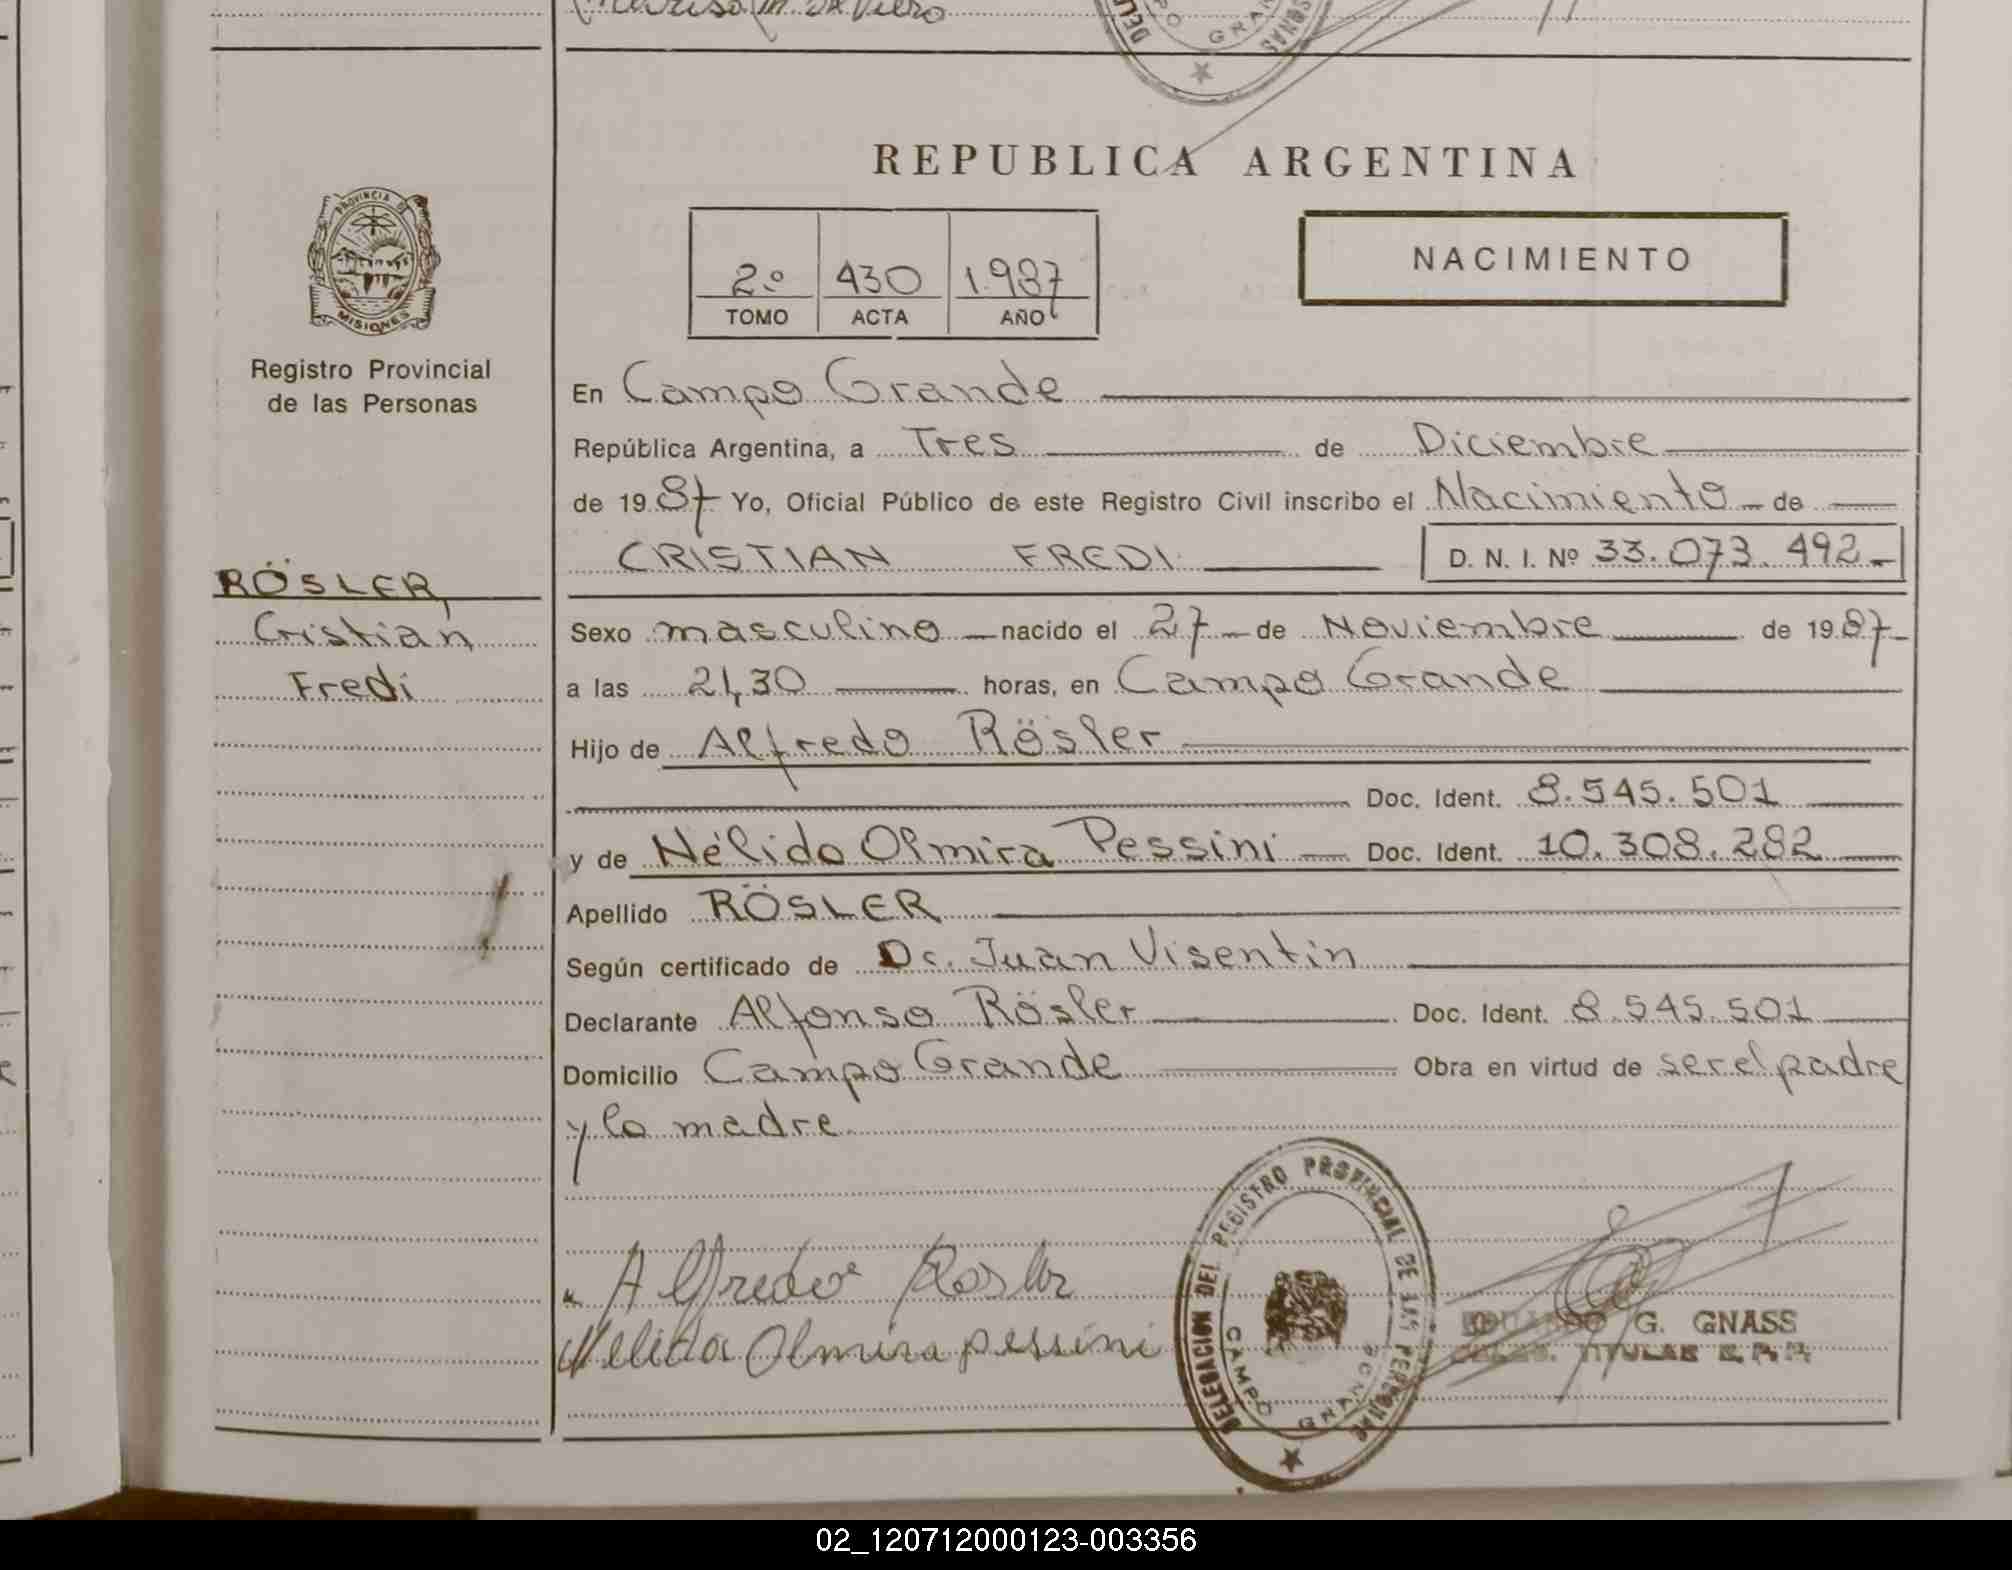 REPUBLICA ARGENTINA
PROVINCIA DE
MISIONES
Registro Provincial
de las Personas
2º 430 1.987
TOMO ACTA AÑO
NACIMIENTO
En Campo Grande
República Argentina, a Tres de Diciembre
de 1987 Yo, Oficial Público de este Registro Civil inscribo el Nacimiento de
CRISTIAN FREDI D. N. I. Nº 33.073.492
RÖSLER,
Cristian
Fredi
Sexo masculino nacido el 27 de Noviembre de 1987
a las 21,30 horas, en Campo Grande
Hijo de Alfredo Rösler
Doc. Ident. 8.545.501
y de Nélido Olmira Pessini Doc. Ident. 10.308.282
Apellido RÖSLER
Según certificado de Dr. Juan Visentin
Declarante Alfonso Rösler Doc. Ident. 8.545.501
Domicilio Campo Grande Obra en virtud de ser el padre
y la madre
Alfredo Rosler
Nelida Olmira pessini
DELEGACION DEL REGISTRO PROVINCIAL DE LAS PERSONAS
CAMPO GRANDE
G. GNASS
TITULAR
02_120712000123-003356